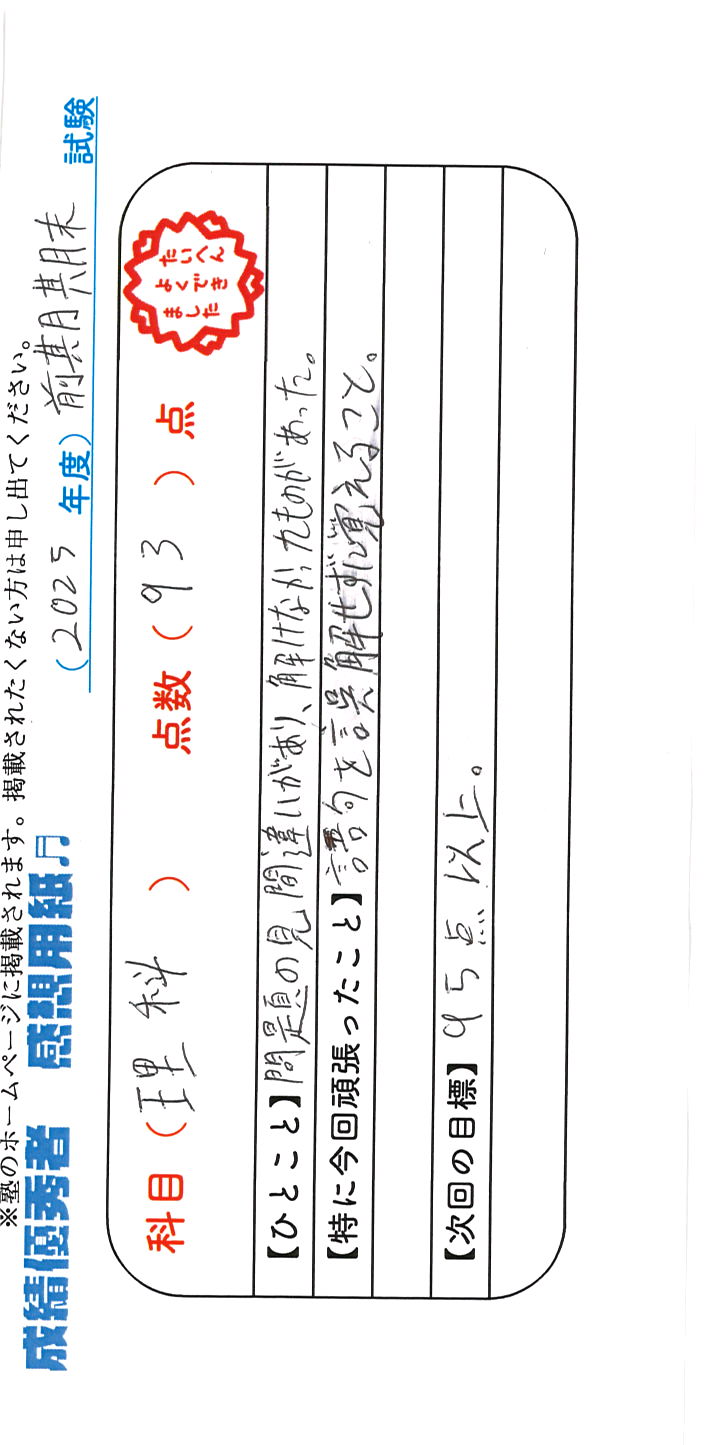 ※塾のホームページに掲載されます。掲載されたくない方は申し出てください。
成績優秀者 感想用紙♬ (2025 年度) 前期期末 試験
科目(理科) 点数(93)点
たいへん
よくでき
ました
【ひとこと】問題の見間違いがあり、解けなかったものがあった。
【特に今回頑張ったこと】語句を誤解せずに覚えること。
【次回の目標】95点以上。